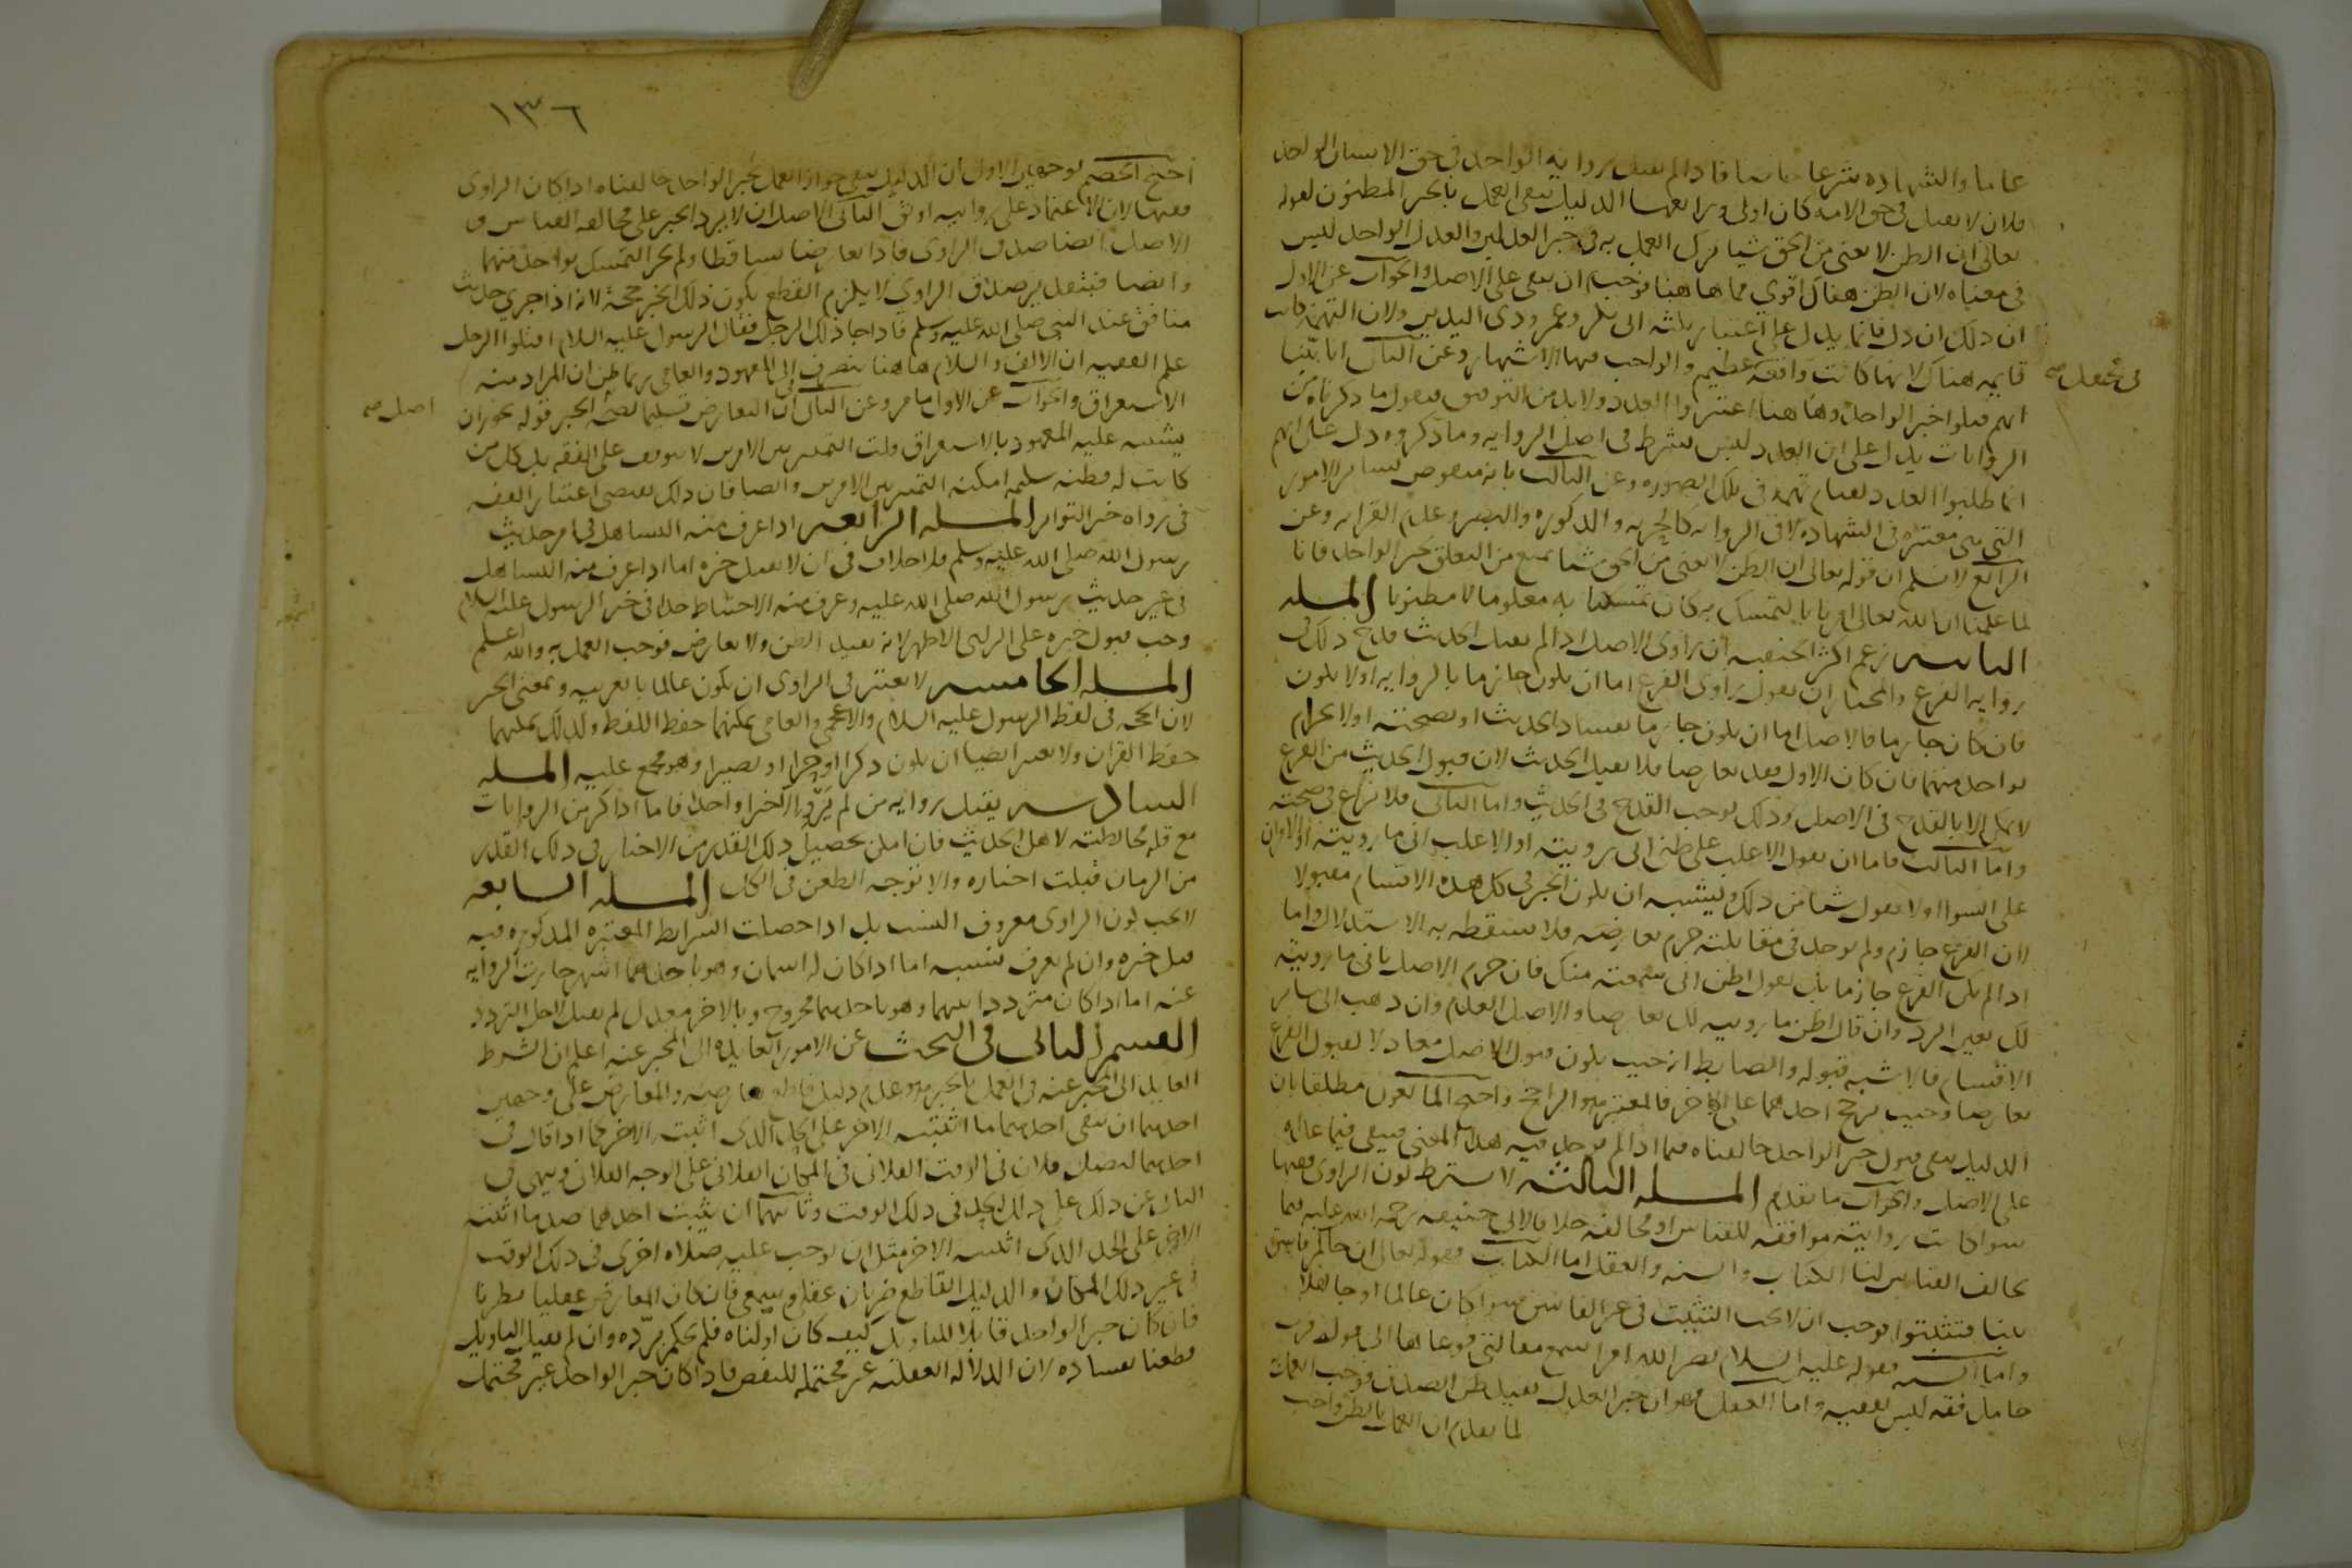 عاما والشهادة شرعا خاصا فاذا لم تقبل رواية الواحد في حق الانسان الواحد
فلان لا تقبل في حق الامة كان اولى ورابعها الدليل ينفى العمل بالخبر المظنون لقوله
تعالى ان الظن لا يغنى من الحق شيا ترك العمل به في خبر العدلين والعدل الواحد ليس
في معناه لان الظن هناك اقوي مما هاهنا فوجب ان يبقى على الاصل والجواب عن الاول
ان ذلك ان دل فانما يدل على اعتبار ثلثة ابى بكر وعمر وذى اليدين ولان التهمة كانت
قايمة هناك لانها كانت واقعة عظيمة والواجب فيها الاشتهار وعن الثانى انا بينا
انهم قبلوا خبر الواحد وهاهنا اعتبروا العدد ولا بد من التوفيق فنقول ما ذكرناه من
الروايات يدل على ان العدد ليس بشرط في اصل الرواية وما ذكروه دل على انهم
انما طلبوا العدد لقيام تهمة في تلك الصورة وعن الثالث بانه منقوض بساير الامور
التى هى معتبرة في الشهادة لا في الرواية كالحرية والذكورة والبصر وعدم القرابة وعن
الرابع لا نسلم ان قوله تعالى ان الظن لا يغنى من الحق شيا يمنع من التعلق بخبر الواحد فانا
لما علمنا ان الله تعالى امرنا بالتمسك به كان تمسكنا به معلوما لا مظنونا المسلة
الثانية زعم اكثر الحنفية ان راوى الاصل اذا لم يقبل الحديث قدح ذلك في
رواية الفرع والمختار ان نقول راوى الفرع اما ان يكون جازما بالرواية او لا يكون
فان كان جازما فالاصل اما ان يكون جازما بفساد الحديث او بصحته او لا يجزم
بواحد منهما فان كان الاول فقد تعارضا فلا يقبل الحديث لان قبول الحديث من الفرع
لا يمكن الا بالقدح في الاصل وذلك يوجب القدح في الحديث واما الثانى فلا نزاع في صحته
واما الثالث فاما ان يقول الاغلب على ظنى انى رويته او الاغلب انى ما رويته او الامران
على السواء او لا يقول شيا من ذلك ويشبه ان يكون الخبر في كل هذه الاقسام مقبولا
لان الفرع جازم ولم يوجد في مقابلته جزم يعارضه فلا يسقط به الاستدلال واما
اذا لم يكن الفرع جازما بل يقول اظن انى سمعته منك فان جزم الاصل بانى ما رويته
لك تعين الرد وان قال اظن ما رويته لك تعارضا والاصل العدم وان ذهب الى ساير
الاقسام فالاشبه قبوله والضابط انه حيث يكون قول الاصل معادلا لقول الفرع
تعارضا وحيث ترجح احدهما على الاخر فالمعتبر هو الراجح واحتج المانعون مطلقا بان
الدليل ينفى قبول خبر الواحد خالفناه فيما اذا لم يوجد فيه هذا المعنى فيبقى فيما عداه
على الاصل والجواب ما تقدم المسلة الثالثة لا يشترط كون الراوى فقيها
سوا كانت روايته موافقة للقياس او مخالفة خلافا لابى حنيفة رحمة الله عليه فيما
يخالف القياس لنا الكتاب والسنة والعقل اما الكتاب فقوله تعالى ان جاكم فاسق
بنبا فتثبتوا فوجب ان لا يجب التثبت في غير الفاسق سوا كان عالما او جاهلا
واما السنة فقوله عليه السلام نضر الله امرا سمع مقالتى فوعاها الى قوله فرب
حامل فقه ليس بفقيه واما العقل فهو ان خبر العدل يفيد ظن الصدق فوجب العمل
لما تقدم ان العمل بالظن واجب
١٣٦
احتج الخصم بوجهين الاول ان الدليل ينفى جواز العمل بخبر الواحد خالفناه اذا كان الراوى
فقيها لان الاعتماد على روايته اوثق الثانى الاصل ان لا يرد الخبر على مخالفة القياس و
الاصل ايضا صدق الراوى فاذا تعارضا تساقطا ولم يجز التمسك بواحد منهما
وايضا فبتقدير صدق الراوي لا يلزم القطع بكون ذلك الخبر حجة لانه اذا جرى حديث
منافق عند النبى صلى الله عليه وسلم فاذا جا ذلك الرجل فقال الرسول عليه السلام اقتلوا الرجل
علم الفقيه ان الالف واللام هاهنا ينصرف الى المعهود والعامى ربما ظن ان المراد منه
الاستغراق والجواب عن الاول ما مر وعن الثانى ان التعارض تسليما لصحة الخبر قوله يجوز ان
يشتبه عليه المعهود بالاستغراق قلت التمييز بين الامرين لا يتوقف على الفقه بل كل من
كانت له فطنة سليمة امكنه التمييز بين الامرين وايضا فان ذلك يقتضى اعتبار الفقه
في رواة خبر التواتر المسلة الرابعة اذا عرف منه التساهل في امر حديث
رسول الله صلى الله عليه وسلم فلا خلاف في ان لا يقبل خبره اما اذا عرف منه التساهل
في غير حديث رسول الله صلى الله عليه وعرف منه الاحتياط جدا في خبر الرسول عليه السلام
وجب قبول خبره على الراى الاظهر لانه يفيد الظن ولا يعارض فوجب العمل به والله اعلم
المسلة الخامسة لا يعتبر في الراوى ان يكون عالما بالعربية وبمعنى الخبر
لان الحجة في لفظ الرسول عليه السلام والاعجمى والعامى يمكنهما حفظ اللفظ ولذلك يمكنهما
حفظ القران ولا يعتبر ايضا ان يكون ذكرا او حرا او بصيرا وهو مجمع عليه المسلة
السادسة يقبل رواية من لم يرو الا خبرا واحدا فاما اذا اكثر من الروايات
مع قلة مخالطته لاهل الحديث فان امكن تحصيل ذلك القدر من الاخبار في ذلك القدر
من الزمان قبلت اخباره والا توجه الطعن في الكل المسلة السابعة
لا يجب كون الراوى معروف النسب بل اذا حصلت الشرايط المعتبرة المذكورة فيه
قبل خبره وان لم يعرف نسبه اما اذا كان له اسمان وهو باحدهما اشهر جازت الرواية
عنه اما اذا كان مترددا بينهما وهو باحدهما مجروح وبالاخر معدل لم يقبل لاجل التردد
القسم الثانى فى البحث عن الامور العايدة الى المخبر عنه اعلم ان الشرط
العايد الى المخبر عنه في العمل بالخبر هو عدم دليل قاطع يعارضه والمعارض على وجهين
احدهما ان ينفى احدهما ما اثبته الاخر على الحد الذى اثبت الاخر كما اذا قال في
احدهما ليصل فلان في الوقت الفلانى في المكان الفلانى على الوجه الفلانى وينهى في
الثانى عن ذلك على ذلك الحد في ذلك الوقت وثانيهما ان يثبت احدهما ضد ما اثبته
الاخر على الحد الذى اثبته الاخر مثل ان يوجب عليه صلاة اخرى في ذلك الوقت
في غير ذلك المكان والدليل القاطع ضربان عقلى وسمعى فان كان المعارض عقليا نظرنا
فان كان خبر الواحد قابلا للتاويل كيف كان اولناه فلم يحكم برده وان لم يقبل التاويل
قطعنا بفساده لان الدلالة العقلية غير محتملة للنقض فاذا كان خبر الواحد غير محتمل
اصل صح